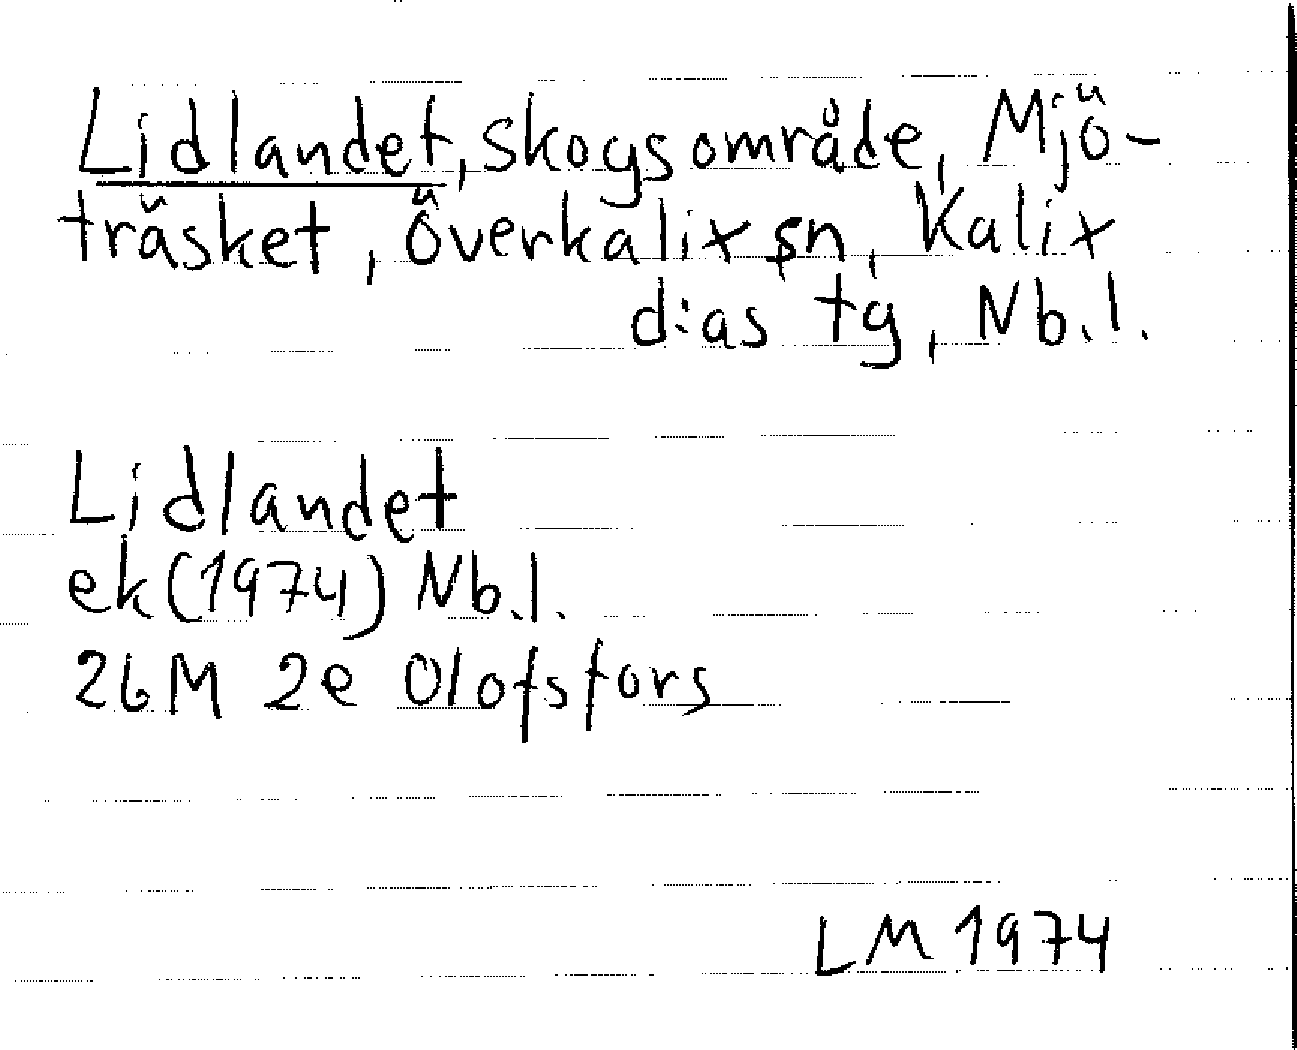 Lidlandet, skogsområde, Mjö-
träsket, Överkalix sn, Kalix
d:as tg, Nb.l.
Lidlandet
ek (1974) Nb.l.
26M 2e Olofsfors
LM 1974